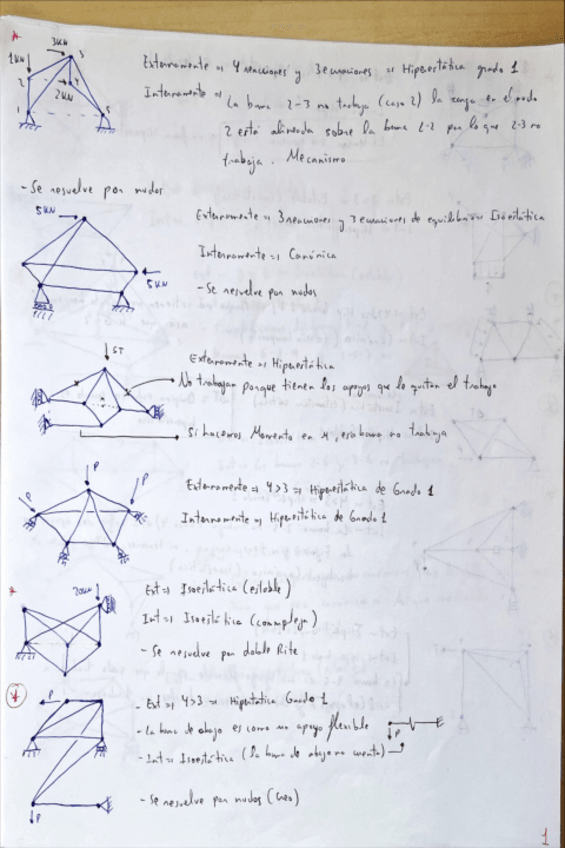 3KN
1KN
2KN
1
2
3
4
5
Externamente => 4 reacciones y 3 ecuaciones => Hiperestática grado 1
Internamente => La barra 2-3 no trabaja (caso 2) la carga en el nudo
2 está alineada sobre la barra 1-2 por lo que 2-3 no
trabaja. Mecanismo
- Se resuelve por nudos
5KN
5KN
Externamente => 3 reacciones y 3 ecuaciones de equilibrio => Isostática
Internamente => Canónica
- Se resuelve por nudos
5T
Externamente => Hiperestática
No trabajan porque tienen los apoyos que le quitan el trabajo
Si hacemos Momento en x, esa barra no trabaja
P
P
P
Externamente => 4>3 => Hiperestática de Grado 1
Internamente => Hiperestática de Grado 1
20KN
Ext => Isostática (estable)
Int => Isostática (compleja)
- Se resuelve por doble Ritter
P
- Ext => 4>3 => Hiperstática Grado 1
- La barra de abajo es como un apoyo flexible
P
- Int => Isostática (la barra de abajo no cuenta)
- Se resuelve por nudos (creo)
P
1